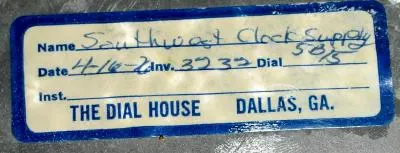 Name Southwest Clock Supply
Date 4-16- Inv. 3232 Dial 5 8/5
Inst.
THE DIAL HOUSE DALLAS, GA.